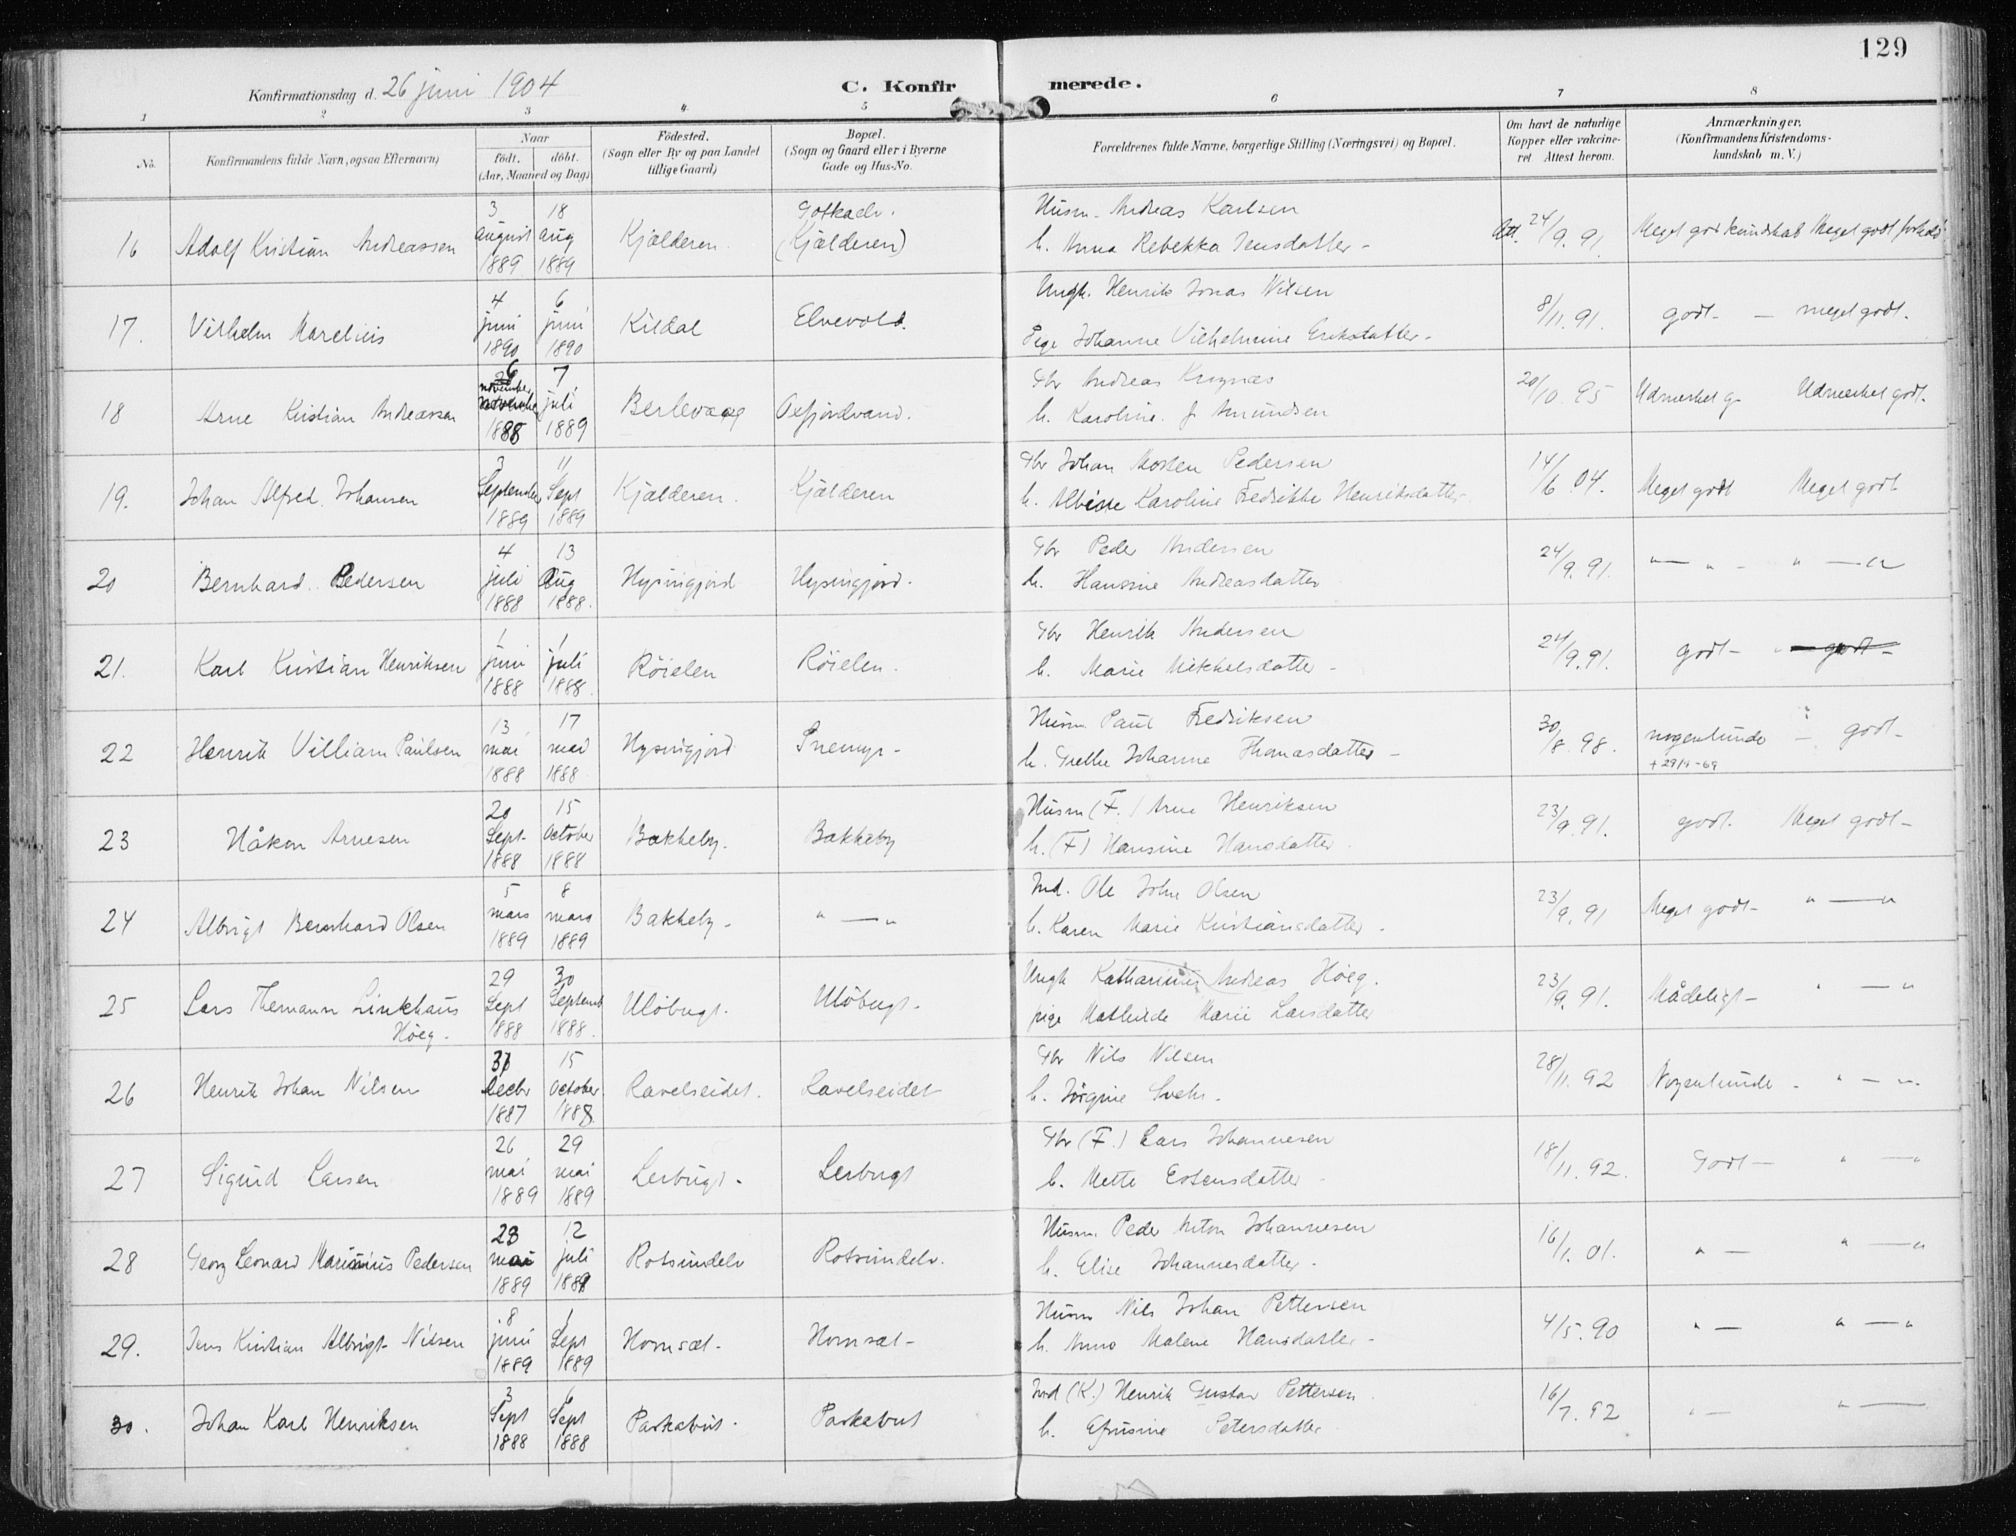 129
Konfirmationsdag d. 26 juni 1904
C. Konfirmerede.
1 2 3 4 5 6 7 8
No.
Konfirmandens fulde Navn, ogsaa Efternavn)
Naar
født. døbt.
(Aar, Maaned og Dag)
Fødested.
(Sogn eller By og paa Landet
tillige Gaard)
Bopæl.
(Sogn og Gaard eller i Byerne
Gade og Hus-No.
Forældrenes fulde Navne, borgerlige Stilling (Næringsvei) og Bopæl.
Om havt de naturlige
Kopper eller vakcine-
ret Attest herom.
Anmærkninger.
(Konfirmandens Kristendoms-
kundskab m. V.)
16 Adolf Kristian Andreassen 3 august 1889 18 aug 1889 Kjælderen (Kjælderen)
Husm. Andreas Karlsen
h. Anna Rebekka Jensdatter - Att. 24/9.91. Meget god kundskab Meget godt forhold
17. Vilhelm Marelius 4 juni 1890 6 juni 1890 Kildal Elvevold.
Ungk. Henrik Jonas Nilsen
Pige Johanne Vilhelmine Eriksdatter - 8/11.91. godt - meget godt.
18 Arne Kristian Andreassen 26 november 1888 7 juli 1889 Berlevaag Oxfjordvand.
Gbr Andreas Kvænæs
h. Karoline f. Amundsen 20/10.95 Udmærket g Udmærket godt.
19. Johan Alfred Johansen 3 September 1889 11 Sept 1889 Kjælderen. Kjælderen
Gbr Johan Morten Pedersen
h. Albine Karoline Fredrikke Henriksdatter 14/6.04. Meget godt Meget godt
20 Bernhard Pedersen 4 juli 1888 13 Aug 1888. Hysingjord Hysingjord.
Gbr Peder Andersen
h. Hansine Andreasdatter 24/9.91. " — " — " — "
21. Karl Kristian Henriksen 1 juni 1888 1 juli 1888. Røielen Røielen.
Gbr Henrik Andersen
h. Marie Mikkelsdatter - 24/9.91. godt - godt -
22 Henrik Villiam Paulsen 13 mai 1888 17 mai 1888 Hysingjord Snemyr -
Husm Paul Fredriksen
h. Grethe Johanne Thomasdatter - 30/8.98. nogenlunde - godt -
23 Håkon Arnesen 20 Sept. 1888 15 October 1888 Bakkeby. Bakkeby
Husm (F.) Arne Henriksen
h. (F) Hansine Hansdatter. 23/9.91. godt. Meget godt -
24 Albrigt Bernhard Olsen 5 mars 1889 8 mars 1889 Bakkeby - " — "
Ind. Ole Johe Olsen
h. Karen Marie Kristiansdatter. 23/9.91 Meget godt - " — "
25 Lars Themann Linkhaus
Høeg. 29 Sept 1888 30 Septemb 1888. Uløbugt. Uløbugt.
Ungk Katharinus Andreas Høeg.
pige Mathilde Marie Larsdatter 23/9.91. Mådeligt - " — "
26 Henrik Johan Nilsen 31 Decbr 1887 15 October 1888. Ravelseidet. Ravelseidet
Gbr Nils Nilsen
h. Jørgine 28/11.92 Nogenlunde - " — "
27 Sigurd Larsen 26 mai 1889 29 mai 1889 Lerbugt. Lerbugt
Gbr (F.) Lars Johannesen
h. Mette Estensdatter 18/11.92. Godt - " — "
28 Georg Leonard Marinius Pedersen 28 mai 1889 12 juli 1889 Rotsundelv Rotsundelv.
Husm. Peder Anton Johannesen
h. Elise Johannesdatter. 16/1.01. " — " — "
29. Jens Kristian Albrigt Nilsen 8 juni 1889 1 Sept 1889 Hornsæt - Hornsæt -
Husm Nils Johan Pettersen
h. Anna Malene Hansdatter - 4/5.90 " — " — "
30. Johan Karl Henriksen 3 Sept 1888 6 Sept 1888 Paskabut. Paskabut
Ind (K.) Henrik Gustav Pettersen
h. Efrusine Petersdatter 16/7.92 " — " —